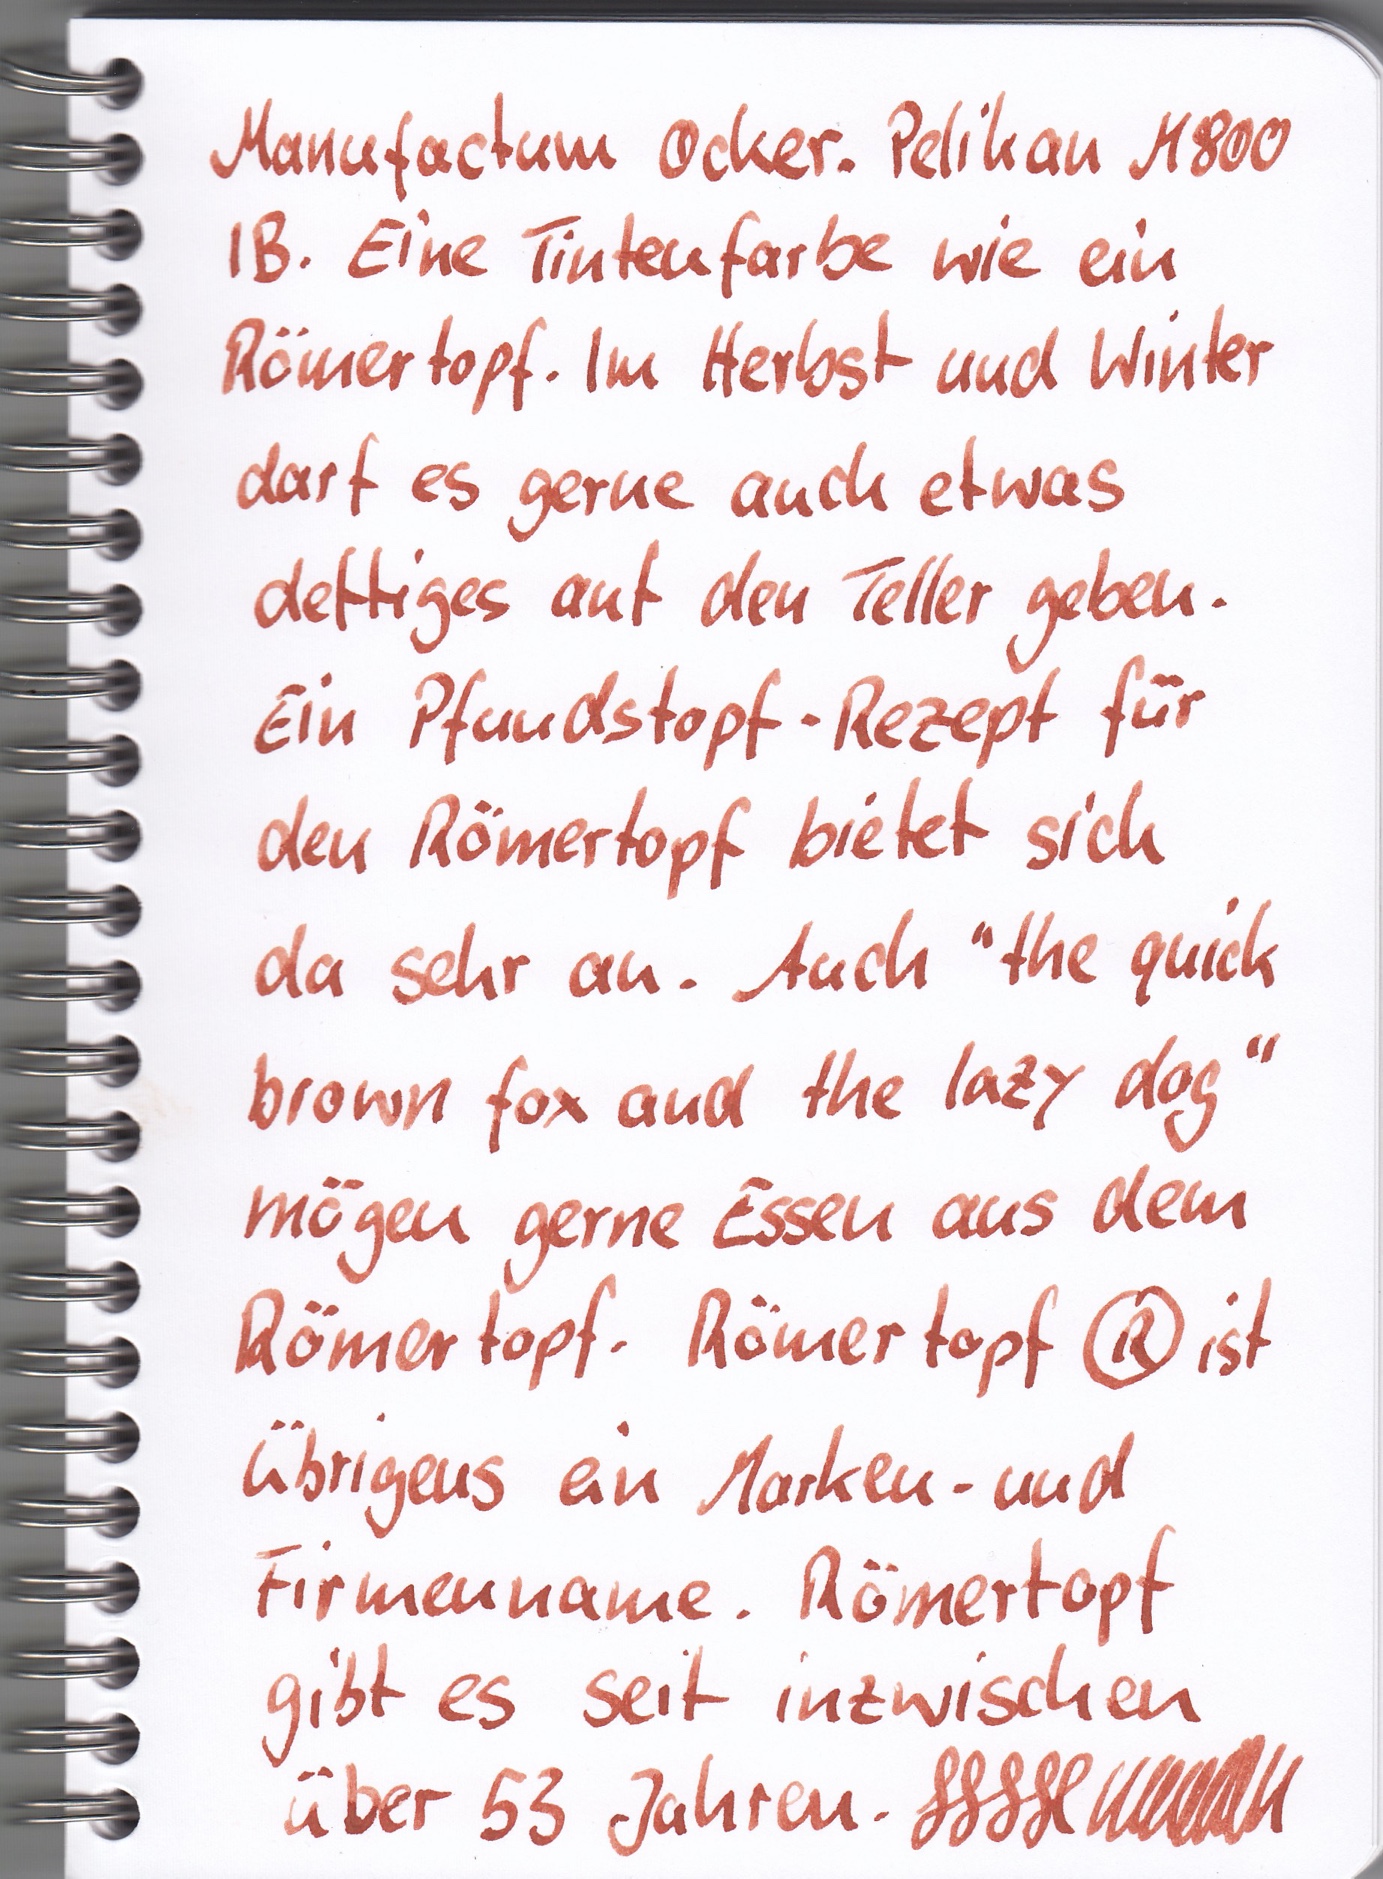 Manufactum Ocker. Pelikan M800
IB. Eine Tintenfarbe wie ein
Römertopf. Im Herbst und Winter
darf es gerne auch etwas
deftiges auf den Teller geben.
Ein Pfundstopf-Rezept für
den Römertopf bietet sich
da sehr an. Auch "the quick
brown fox and the lazy dog"
mögen gerne Essen aus dem
Römertopf. Römertopf ® ist
übrigens ein Marken- und
Firmenname. Römertopf
gibt es seit inzwischen
über 53 Jahren.